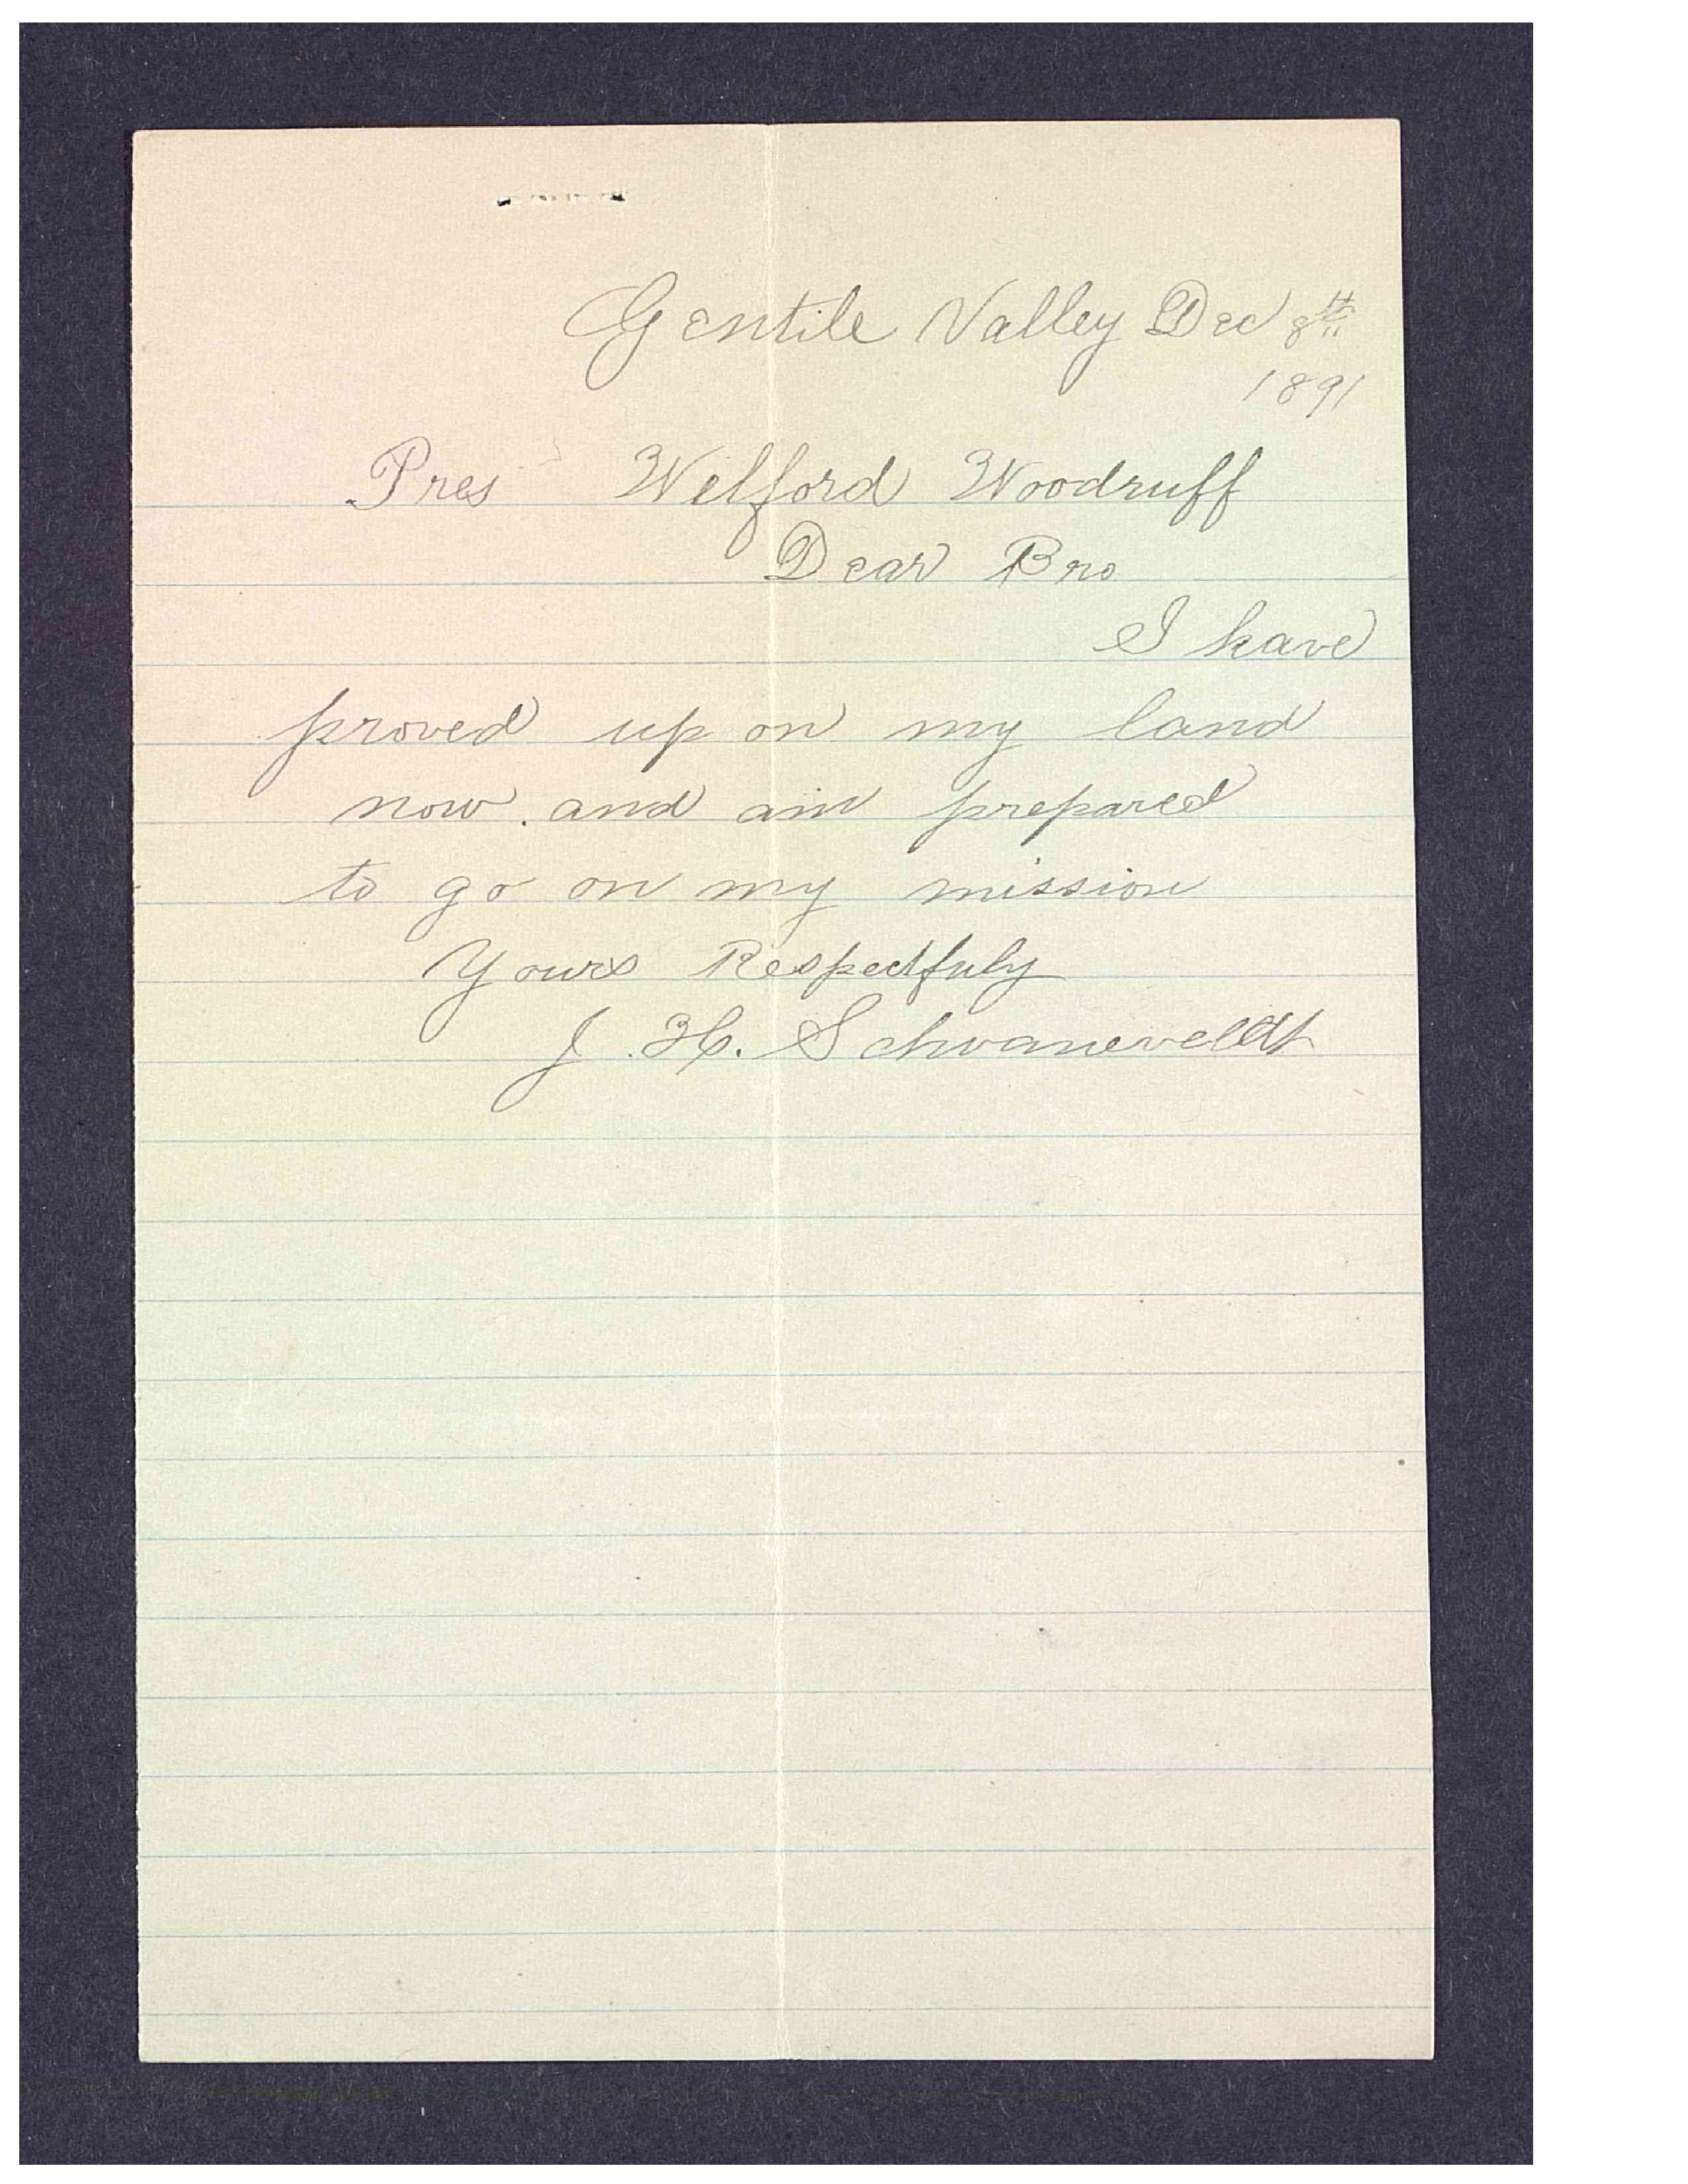 Gentile Valley Dec 8th
1891
Pres Welford Woodruff
Dear Bro
I have
proved up on my land
now. and am prepared
to go on my mission
Yours Respectfuly
J. H. Schvaneveldt